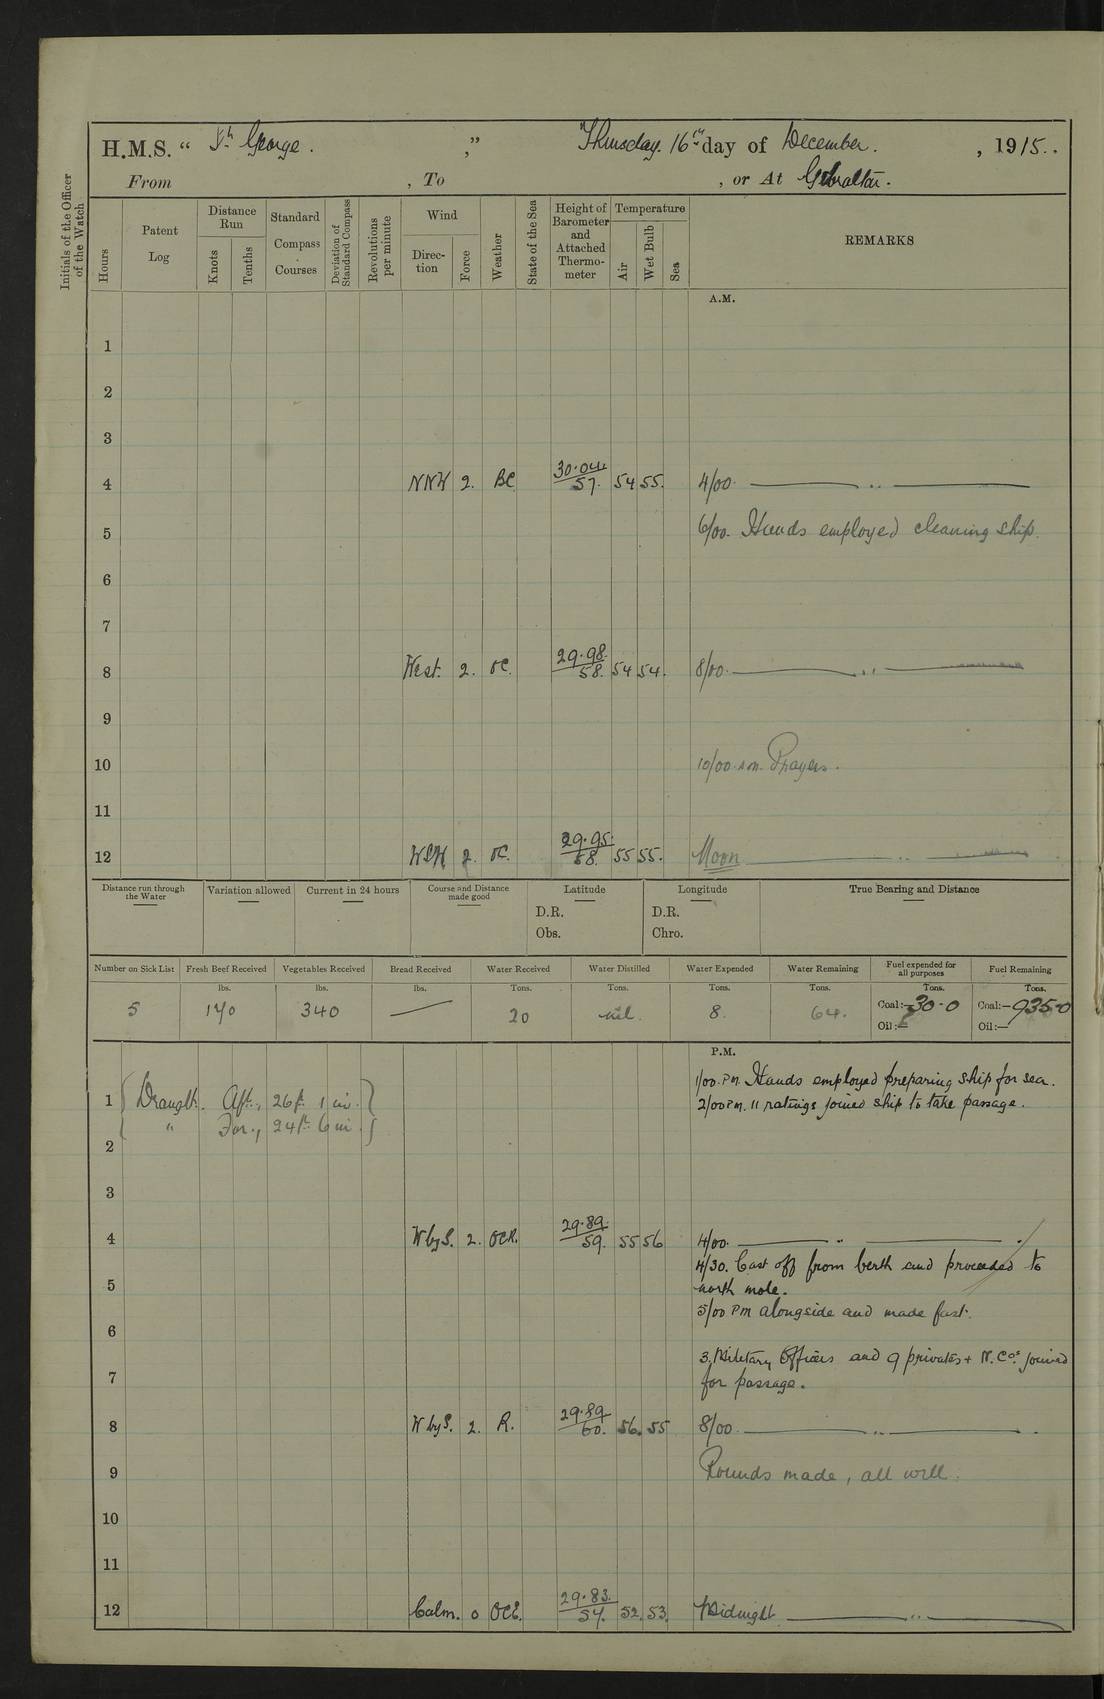 H.M.S. " St George. ," Thursday. 16th day of December. , 1915..
From , To , or At Gibraltar.
Initials of the Officer of the Watch
Hours
Patent Log
Distance Run
Knots
Tenths
Standard Compass Courses
Deviation of Standard Compass
Revolutions per minute
Wind
Direction
Force
Weather
State of the Sea
Height of Barometer and Attached Thermometer
Temperature
Air
Wet Bulb
Sea
REMARKS
A.M.
1
2
3
4 NNW 2. BC 30.04 57. 54 55. 4/00. ——— „ ———
5 6/00. Hands employed cleaning ship.
6
7
8 West. 2. OC. 29.98. 58. 54 54. 8/00. ——— „ ———
9
10 10/00 am. Prayers.
11
12 WSW 2. OC. 29.95. 58. 55 55. Noon ——— „ ———
Distance run through the Water
Variation allowed
Current in 24 hours
Course and Distance made good
Latitude
D.R.
Obs.
Longitude
D.R.
Chro.
True Bearing and Distance
Number on Sick List
Fresh Beef Received
Vegetables Received
Bread Received
Water Received
Water Distilled
Water Expended
Water Remaining
Fuel expended for all purposes
Fuel Remaining
lbs. lbs. lbs. Tons. Tons. Tons. Tons. Tons. Tons.
5 170 340 — 20 nil. 8. 64. Coal:—30.0 Coal:—935.0
Oil:— Oil:—
P.M.
1/00. PM. Hands employed preparing ship for sea.
1 Draught. Aft., 26ft. 1 in. 2/00 PM. 11 ratings joined ship to take passage.
" For., 24ft 6 in.
2
3
4 W by S. 2. OCR. 29.89. 59. 55 56 4/00. ——— „ ———
4/30. Cast off from berth and proceeded to
5 north mole.
5/00 PM alongside and made fast.
6
3. Military Officers and 9 privates + N.Cos. joined
7 for passage.
8 W by S. 2. R. 29.89 60. 56. 55 8/00. ——— „ ———
9 Rounds made, all well.
10
11
12 Calm. 0 29.83. 54. 52. 53. Midnight ——— „ ———